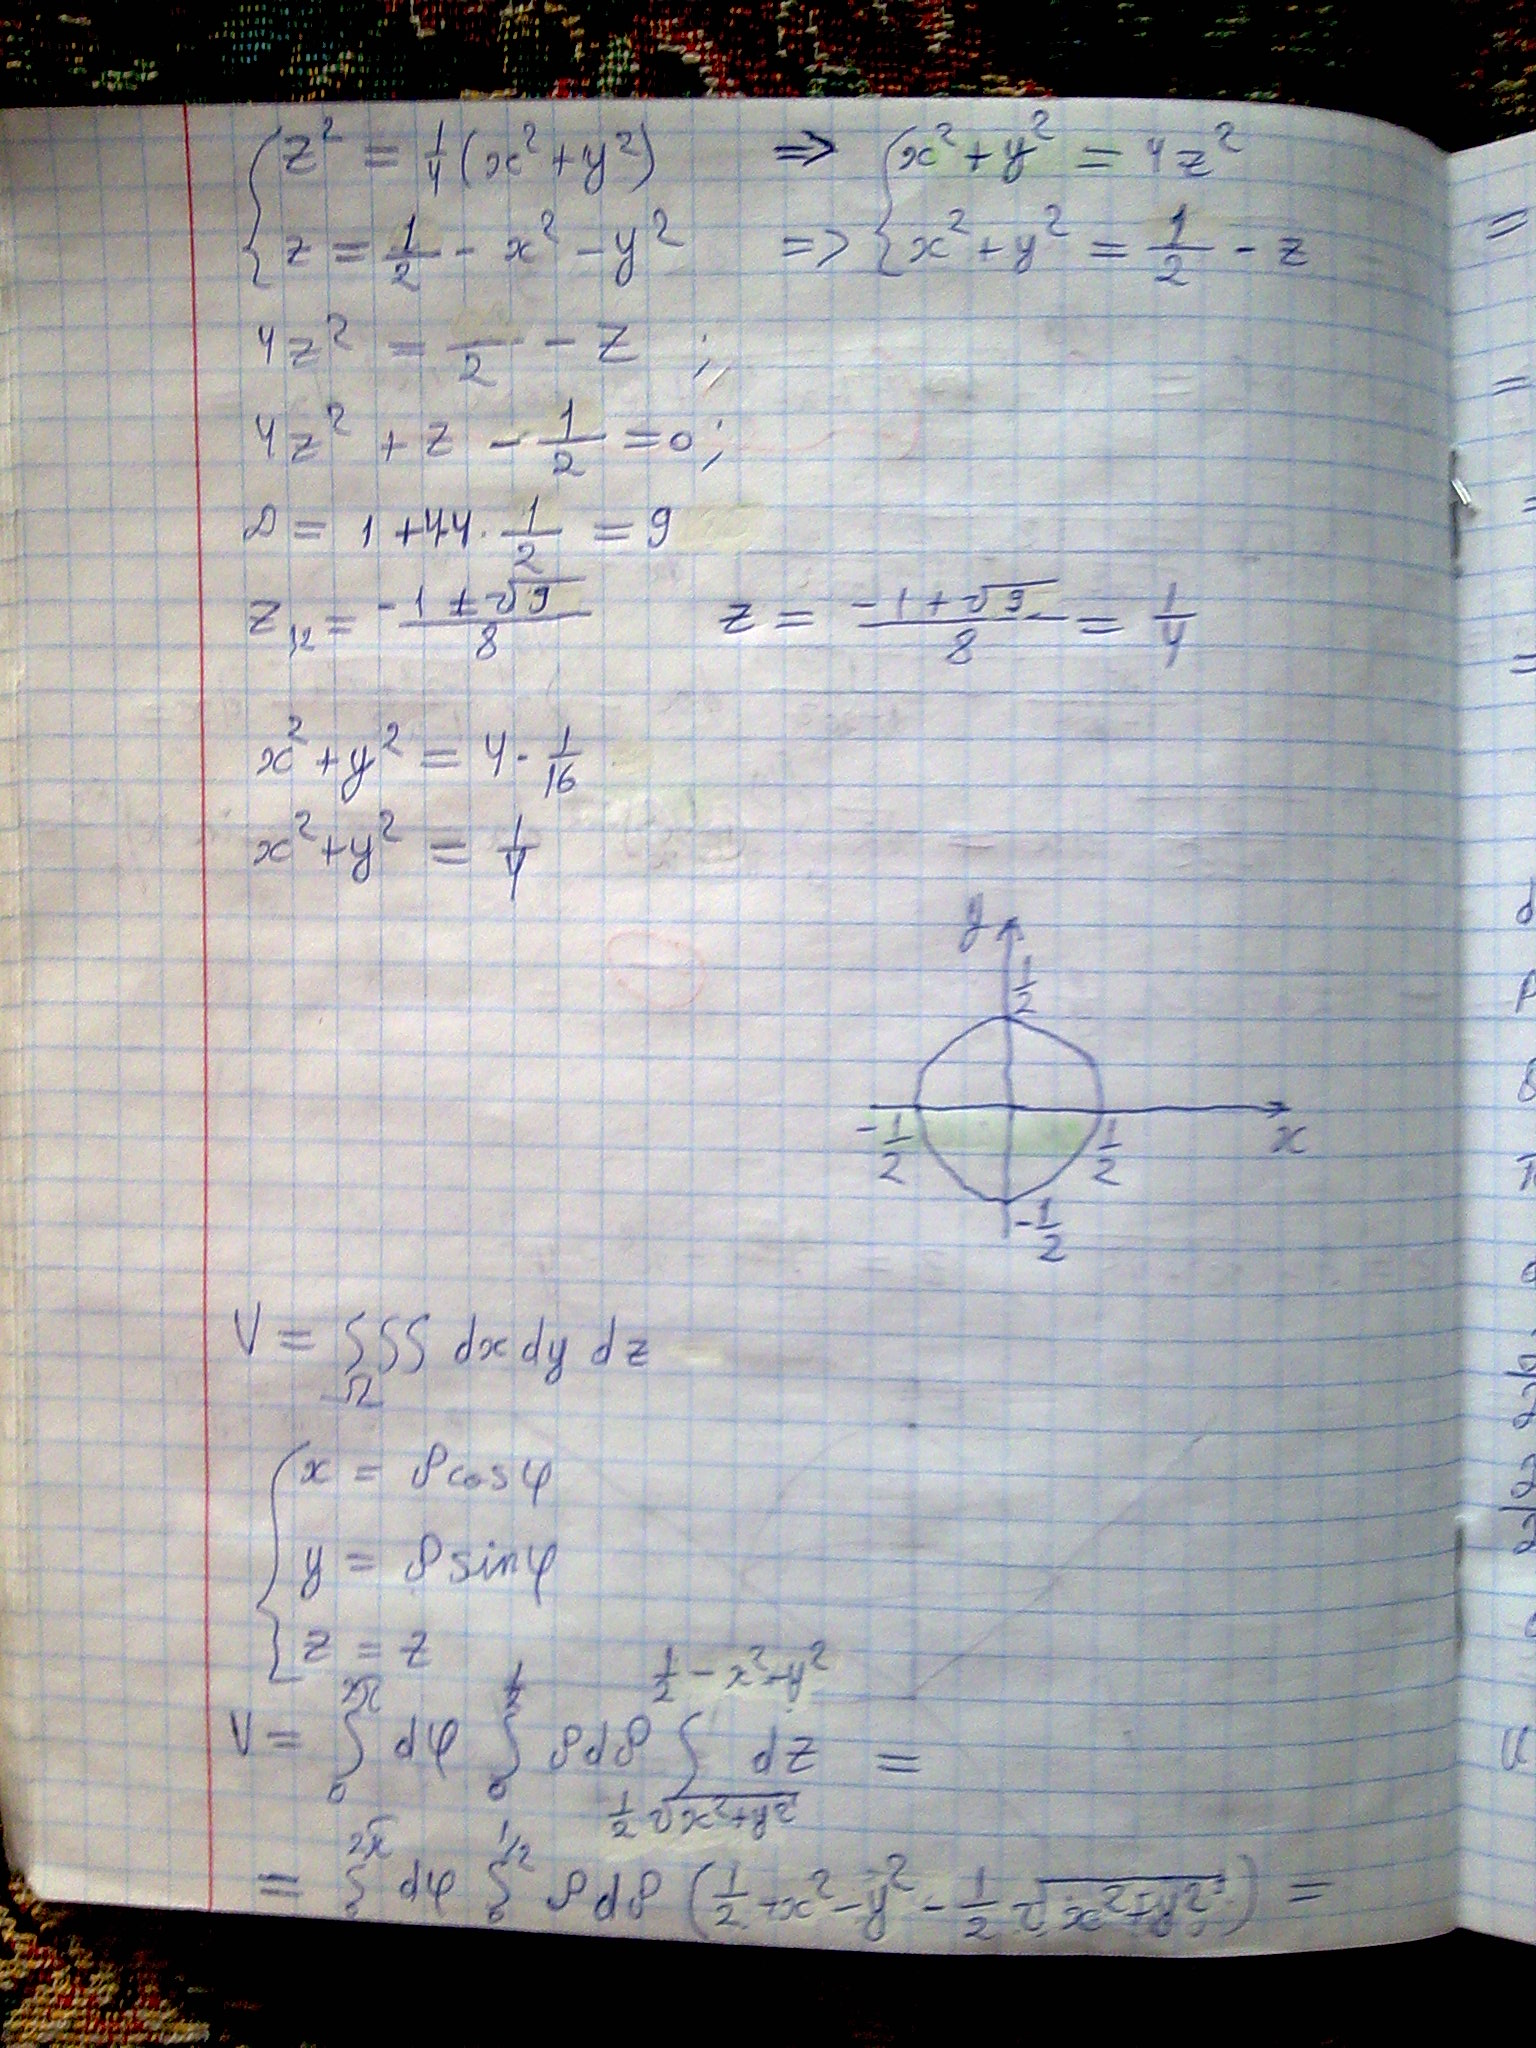 { z² = 1/4 (x² + y²) => { x² + y² = 4z²
{ z = 1/2 - x² - y² => { x² + y² = 1/2 - z
4z² = /2 - z ;
4z² + z - 1/2 = 0;
D = 1 + 44 · 1/2 = 9
z₁,₂ = (-1 ± √9)/8 z = (-1 + √9)/8 = 1/4
x² + y² = 4 · 1/16
x² + y² = 1/4
y
1/2
-1/2 1/2 x
-1/2
V = ∫∫∫_Ω dx dy dz
{ x = ρ cos φ
{ y = ρ sin φ
{ z = z
V = ∫₀^{2π} dφ ∫₀^{1/2} ρ dρ ∫_{1/2 √(x²+y²)}^{1/2 - x² - y²} dz =
= ∫₀^{2π} dφ ∫₀^{1/2} ρ dρ (1/2 - x² - y² - 1/2 √(x² + y²)) =